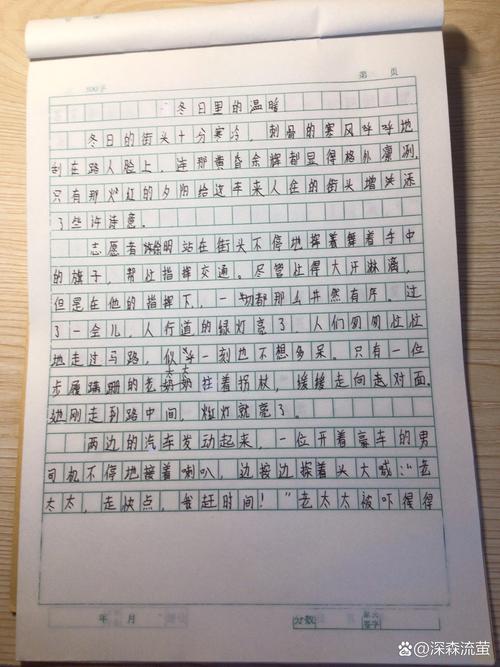 300字
第 页
冬日里的温暖
冬日的街头十分寒冷，刺骨的寒风呼呼地
刮在路人脸上，连那黄昏余辉都显得格外凛冽，
只有那火红的夕阳给这车来人往的街头增添
了些许诗意。
志愿者徐明站在街头不停地挥着舞着手中
的旗子，帮忙指挥交通。尽管忙得大汗淋漓，
但是在他的指挥下，一切都那么井然有序。过
了一会儿，人行道的绿灯亮了，人们匆匆忙忙
地走过马路，似乎一刻也不想多呆。只有一位
步履蹒跚的老太太拄着拐杖，缓缓走向对面。
她刚走到路中间，红灯就亮了。
两边的汽车发动起来，一位开着豪车的男
司机不停地按着喇叭，边按边探着头大喊："老
太太，走快点，我赶时间！"老太太被吓得得
年 月
分数
家长
签字
@深森流萤